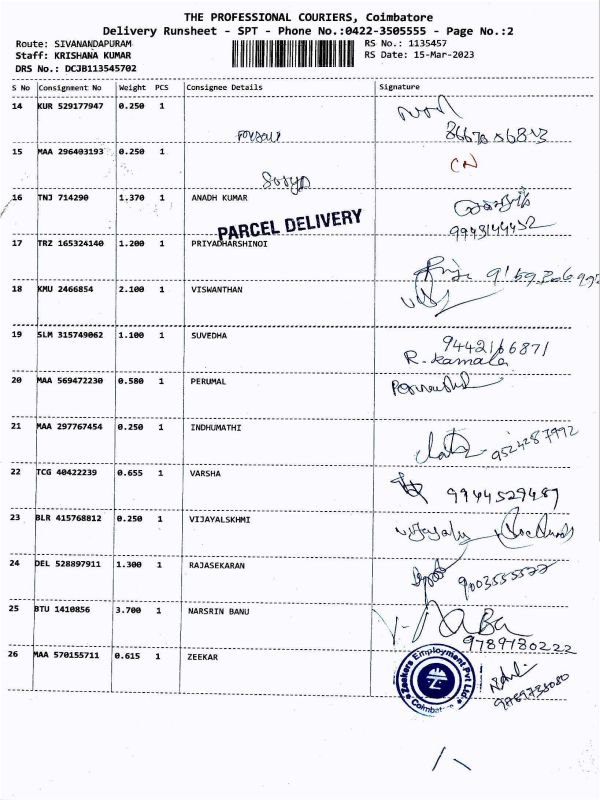 THE PROFESSIONAL COURIERS, Coimbatore
Delivery Runsheet - SPT - Phone No.:0422-3505555 - Page No.:2
Route: SIVANANDAPURAM RS No.: 1135457
Staff: KRISHANA KUMAR RS Date: 15-Mar-2023
DRS No.: DCJB113545702
S No Consignment No Weight PCS Consignee Details Signature
14 KUR 529177947 0.250 1
15 MAA 296403193 0.250 1 CN
16 TNJ 714290 1.370 1 ANADH KUMAR
PARCEL DELIVERY
17 TRZ 165324140 1.200 1 PRIYADHARSHINOI
18 KMU 2466854 2.100 1 VISWANTHAN
19 SLM 315749062 1.100 1 SUVEDHA
9442166871
R. Kamala
20 MAA 569472230 0.580 1 PERUMAL
21 MAA 297767454 0.250 1 INDHUMATHI
9524287992
22 TCG 40422239 0.655 1 VARSHA
9944529489
23 BLR 415768812 0.250 1 VIJAYALSKHMI
24 DEL 528897911 1.300 1 RAJASEKARAN
25 BTU 1410856 3.700 1 NARSRIN BANU
9789780222
26 MAA 570155711 0.615 1 ZEEKAR
Zeekers Employment Pvt Ltd
Coimbatore